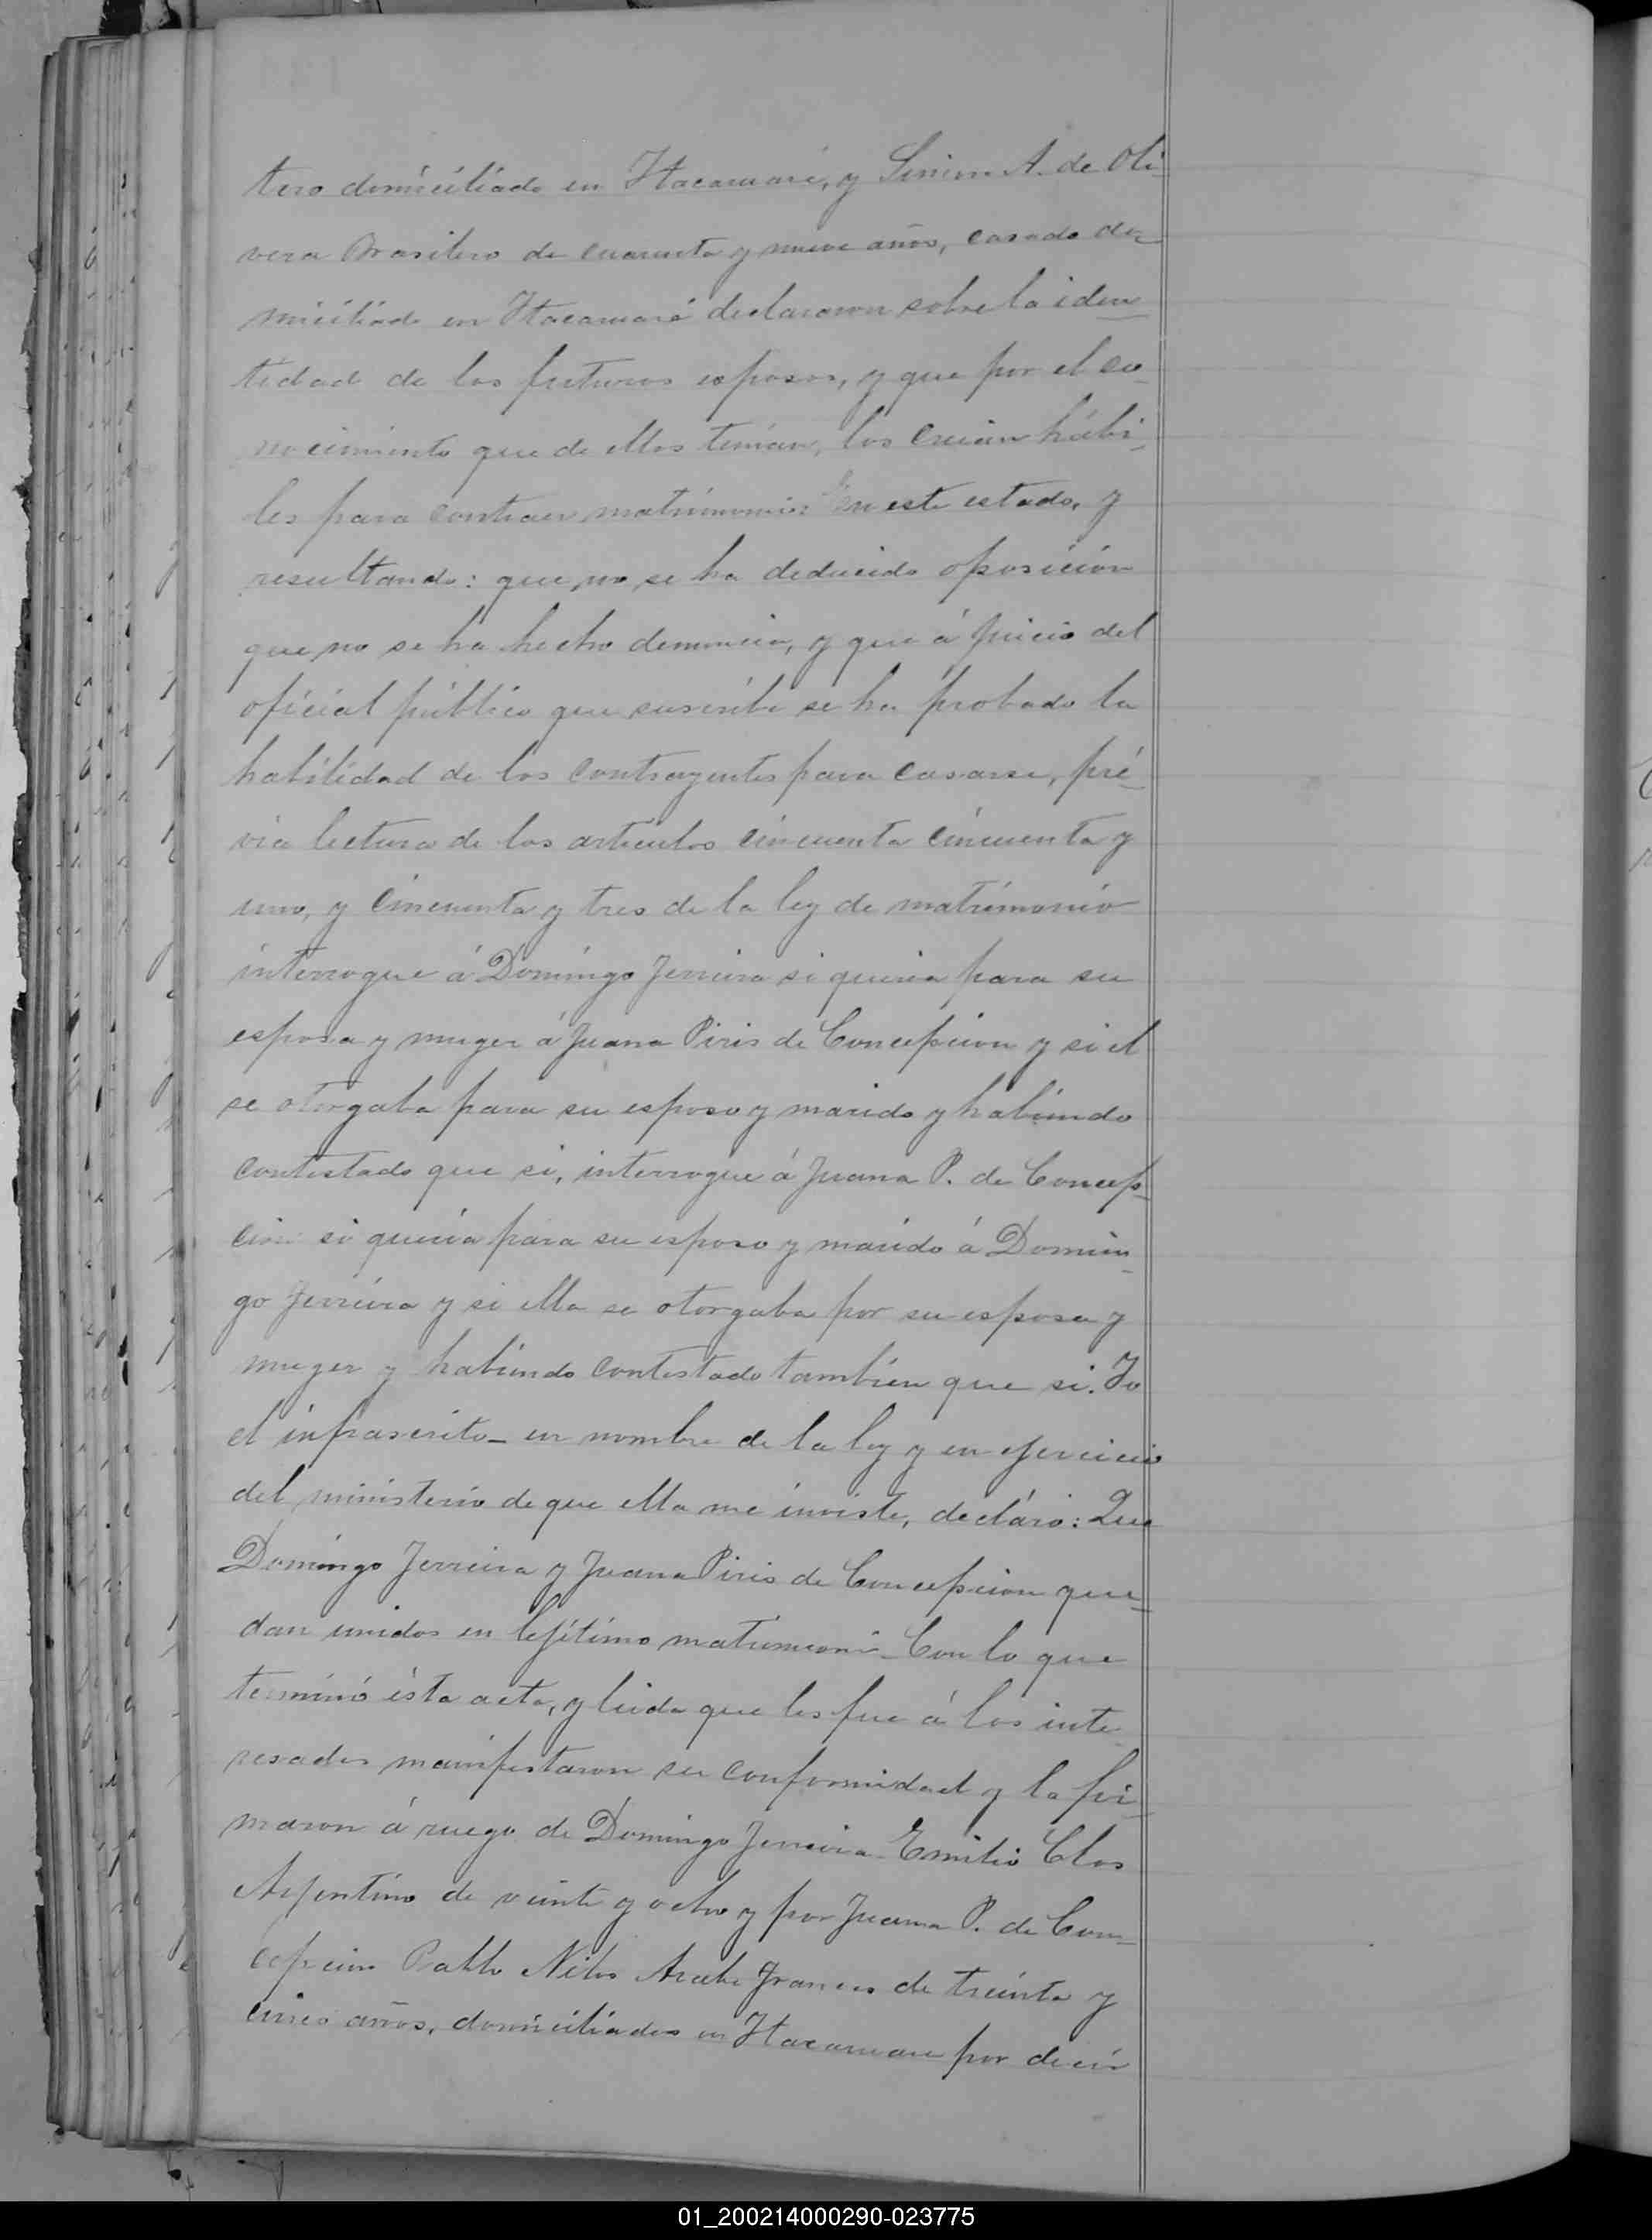 tero domiciliado en Itacaruaré, y  A. de Oli-
vera Brasilero de cuarenta y nueve años, casado do-
miciliado en Itacaruaré declararon sobre la iden-
tidad de los futuros esposos, y que por el co-
nocimiento que de ellos tenían, los creian hábi-
les para contraer matrimonio: En este estado, y
resultando: que no se ha deducido oposición
que no se ha hecho denuncia, y que á juicio del
oficial público que suscribe se ha probado la
habilidad de los contrayentes para casarse, pré-
via lectura de los articulos cincuenta cincuenta y
uno, y cincuenta y tres de la ley de matrimonio
interrogue á Domingo Ferreira si queria para su
esposa y muger á Juana Piris de Concepcion y si el
se otorgaba para su esposo y marido y habiendo
contestado que si, interrogue á Juana P. de Concep-
cion si queria para su esposo y marido á Domin-
go Ferreira y si ella se otorgaba por su esposa y
muger y habiendo contestado tambien que si. Yo
el infrascrito - en nombre de la ley y en ejercicio
del ministerio de que ella me inviste, decláro: Que
Domingo Ferreira y Juana Piris de Concepcion que-
dan unidos en lejítimo matrimonio - Con lo que
terminó ésta acta, y leida que les fue á los inte-
resados manifestaron su conformidad y la fir-
maron á ruego de Domingo Ferreira - Emilio Clos
Arjentino de veinte y ocho y por Juana P. de Con-
cepcion Pablo  Arabe Frances de treinta y
cinco años, domiciliados en Itacaruare por decir
01_200214000290-023775